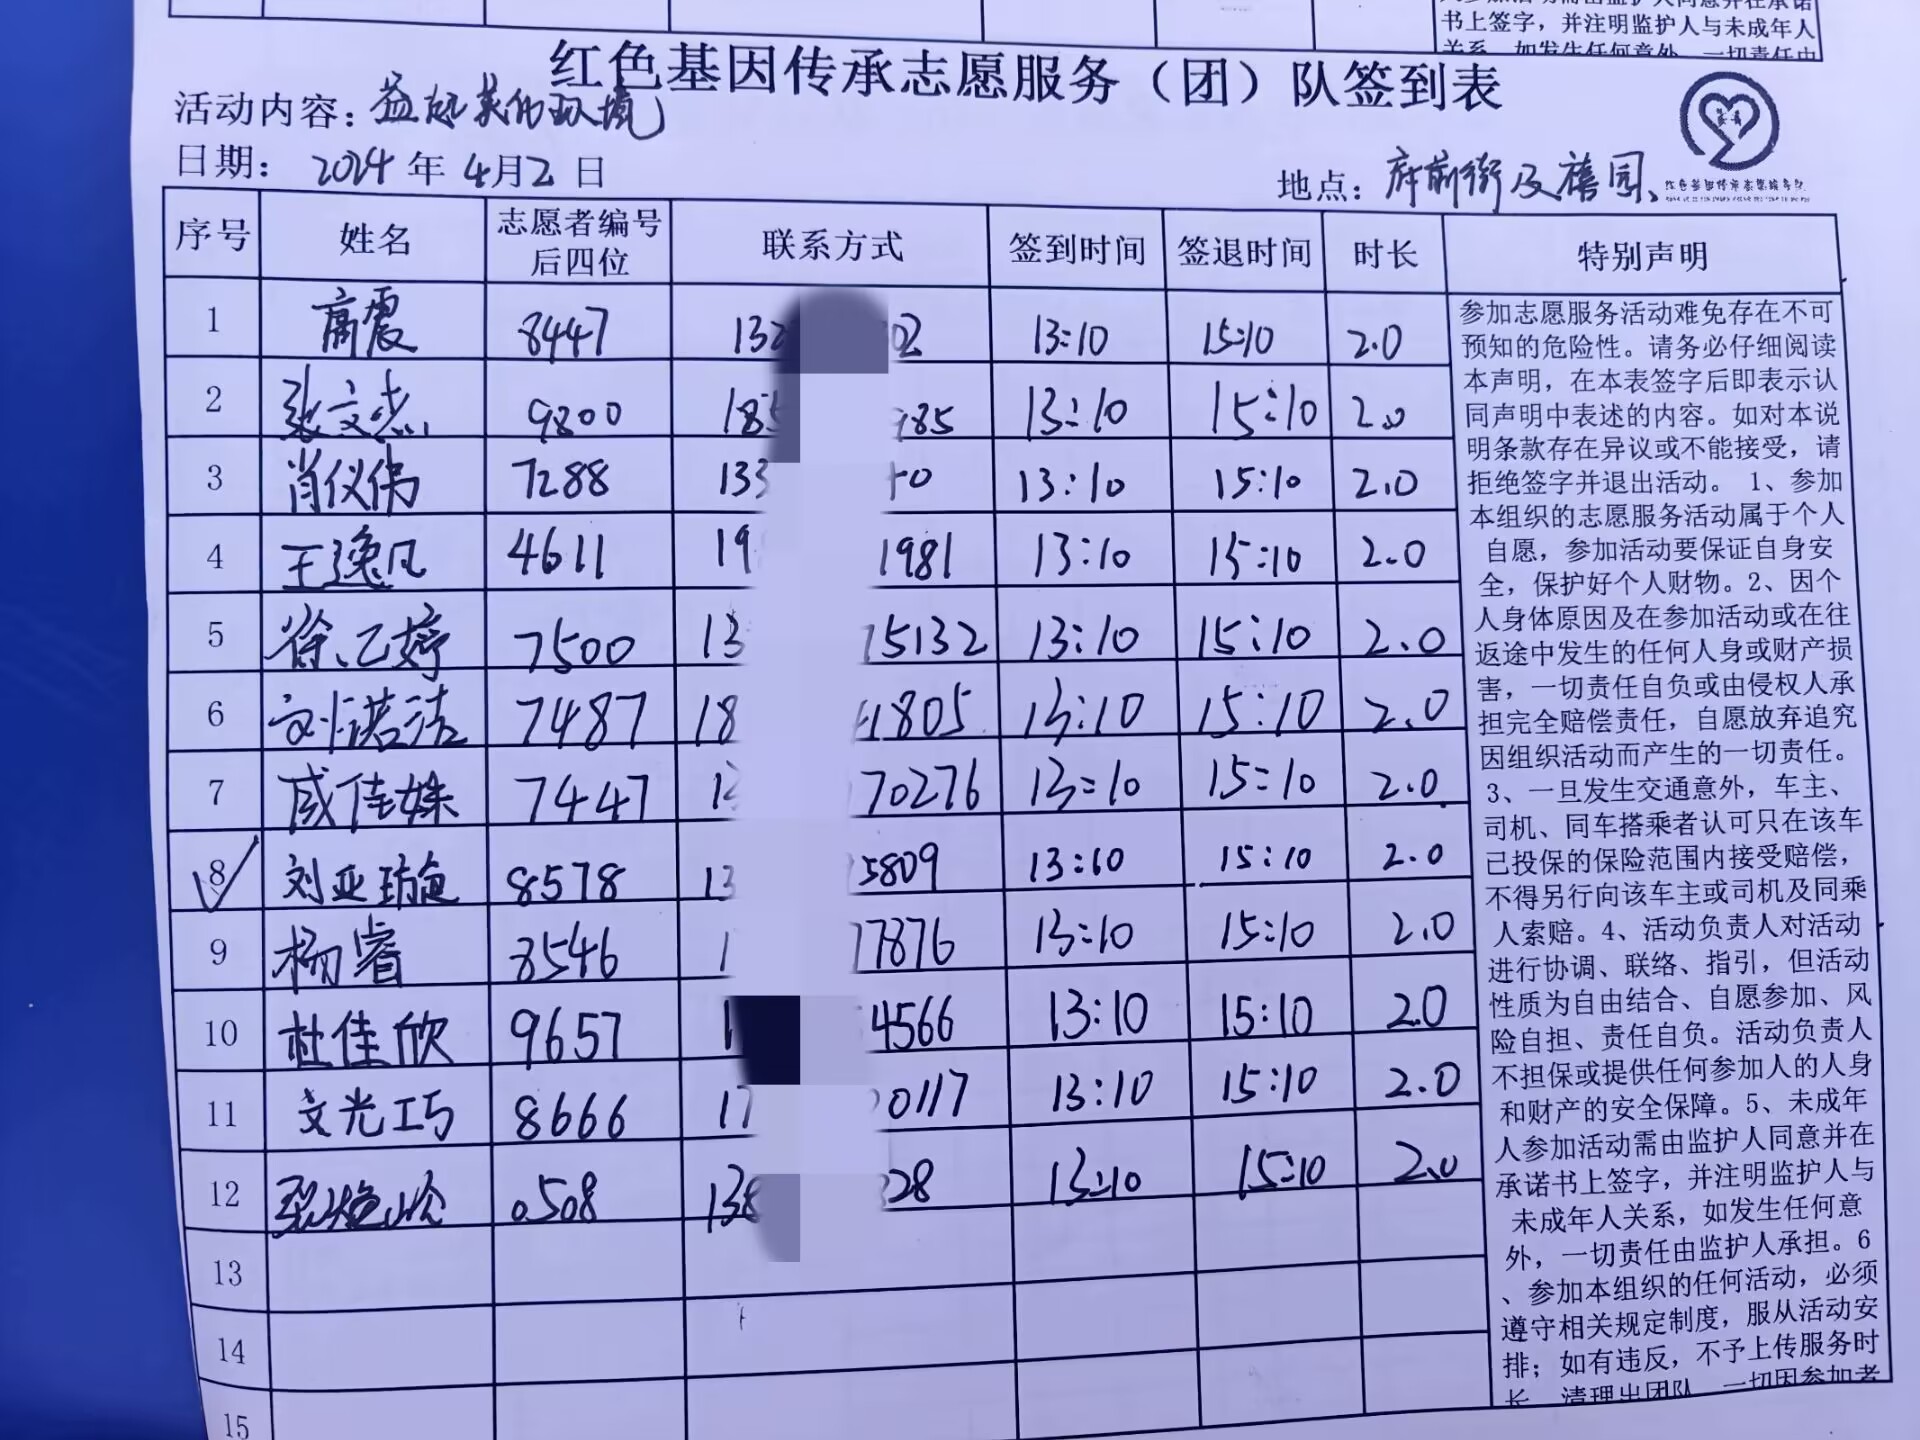 书上签字，并注明监护人与未成年人
关系，如发生任何意外，一切责任由
红色基因传承志愿服务（团）队签到表
活动内容：益起美化环境
日期： 2024年4月2日
地点：府前街及禧园、
序号 姓名 志愿者编号后四位 联系方式 签到时间 签退时间 时长 特别声明
1 高震 8447 132 02 13:10 15:10 2.0
2 张文志 9800 185 985 13:10 15:10 2.0
3 肖仪伟 7288 133 40 13:10 15:10 2.0
4 王逸凡 4611 19 1981 13:10 15:10 2.0
5 徐乙婷 7500 13 75132 13:10 15:10 2.0
6 刘诺洁 7487 18 1805 13:10 15:10 2.0
7 戚佳姝 7447 13 70276 13:10 15:10 2.0
8 刘亚璇 8578 13 5809 13:10 15:10 2.0
9 杨睿 8546 1 77876 13:10 15:10 2.0
10 杜佳欣 9657 1 4566 13:10 15:10 2.0
11 文光巧 8666 17 0117 13:10 15:10 2.0
12 0508 138 328 13:10 15:10 2.0
13
14
15
参加志愿服务活动难免存在不可
预知的危险性。请务必仔细阅读
本声明，在本表签字后即表示认
同声明中表述的内容。如对本说
明条款存在异议或不能接受，请
拒绝签字并退出活动。 1、参加
本组织的志愿服务活动属于个人
自愿，参加活动要保证自身安
全，保护好个人财物。2、因个
人身体原因及在参加活动或在往
返途中发生的任何人身或财产损
害，一切责任自负或由侵权人承
担完全赔偿责任，自愿放弃追究
因组织活动而产生的一切责任。
3、一旦发生交通意外，车主、
司机、同车搭乘者认可只在该车
已投保的保险范围内接受赔偿，
不得另行向该车主或司机及同乘
人索赔。4、活动负责人对活动
进行协调、联络、指引，但活动
性质为自由结合、自愿参加、风
险自担、责任自负。活动负责人
不担保或提供任何参加人的人身
和财产的安全保障。5、未成年
人参加活动需由监护人同意并在
承诺书上签字，并注明监护人与
未成年人关系，如发生任何意
外，一切责任由监护人承担。6
、参加本组织的任何活动，必须
遵守相关规定制度，服从活动安
排；如有违反，不予上传服务时
长，清理出团队，一切因参加者